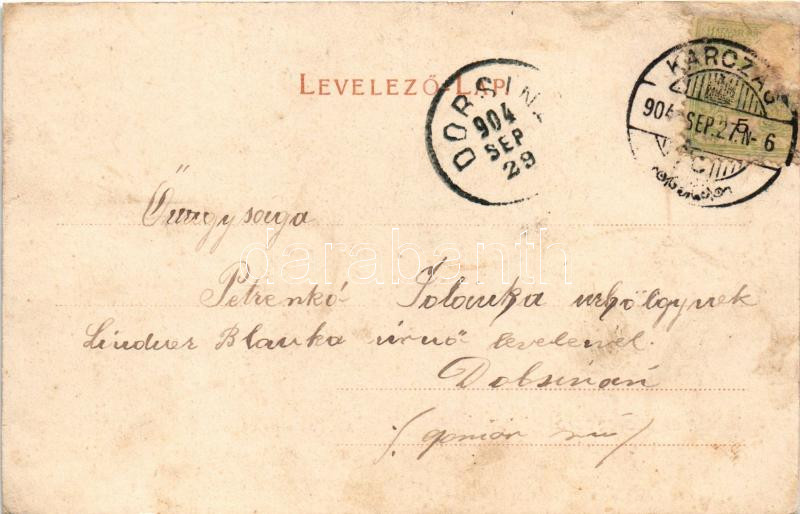 LEVELEZŐ-LAP
DOBSINA
904
SEP
29
KARCZAG
904 SEP. 27. N- 6
Őnagysága
Petrenkó Jolanka urhölgynek
Lindner Blanka úrnő levelével.
Dobsinán
darabanth